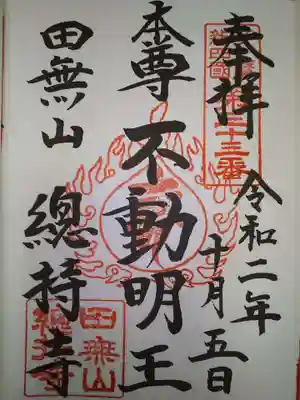 奉拝
令和二年
十月五日
本尊 不動明王
田無山
總持寺
第三十三番
田無山
總持寺